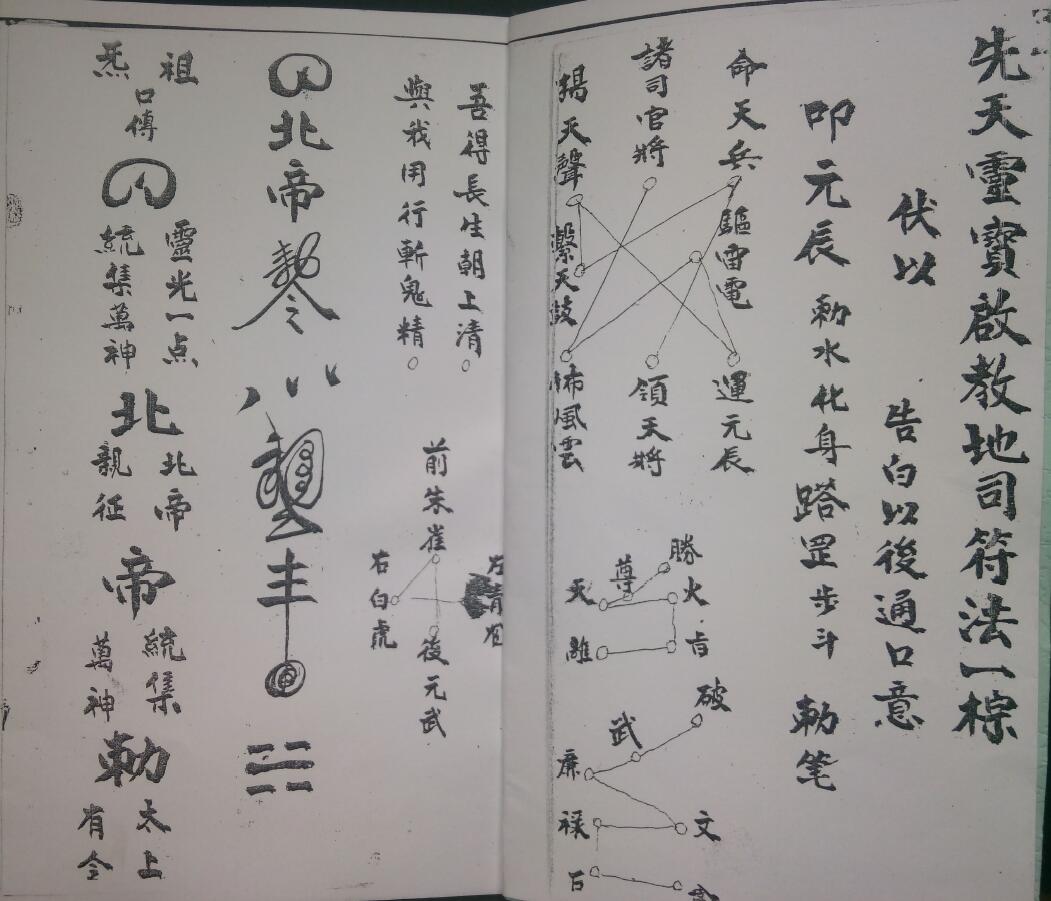 先天靈寶啟教地司符法一棕
伏以 告白以後通口意
叩元辰 勅水化身踏罡步斗 勅笔
命天兵
驅雷電
運元辰
諸司官將
領天將
揚天聲
繫天鼓
佈風雲
勝
尊
火
天
離
破
武
廉
文
禄
吾得長生朝上清
與我用行斬鬼精
前朱雀
右白虎
後元武
北帝
勅令
祖
炁
口傳
靈光一点
統集萬神
北
北帝
親征
帝
統集
萬神
勅
太上
有令